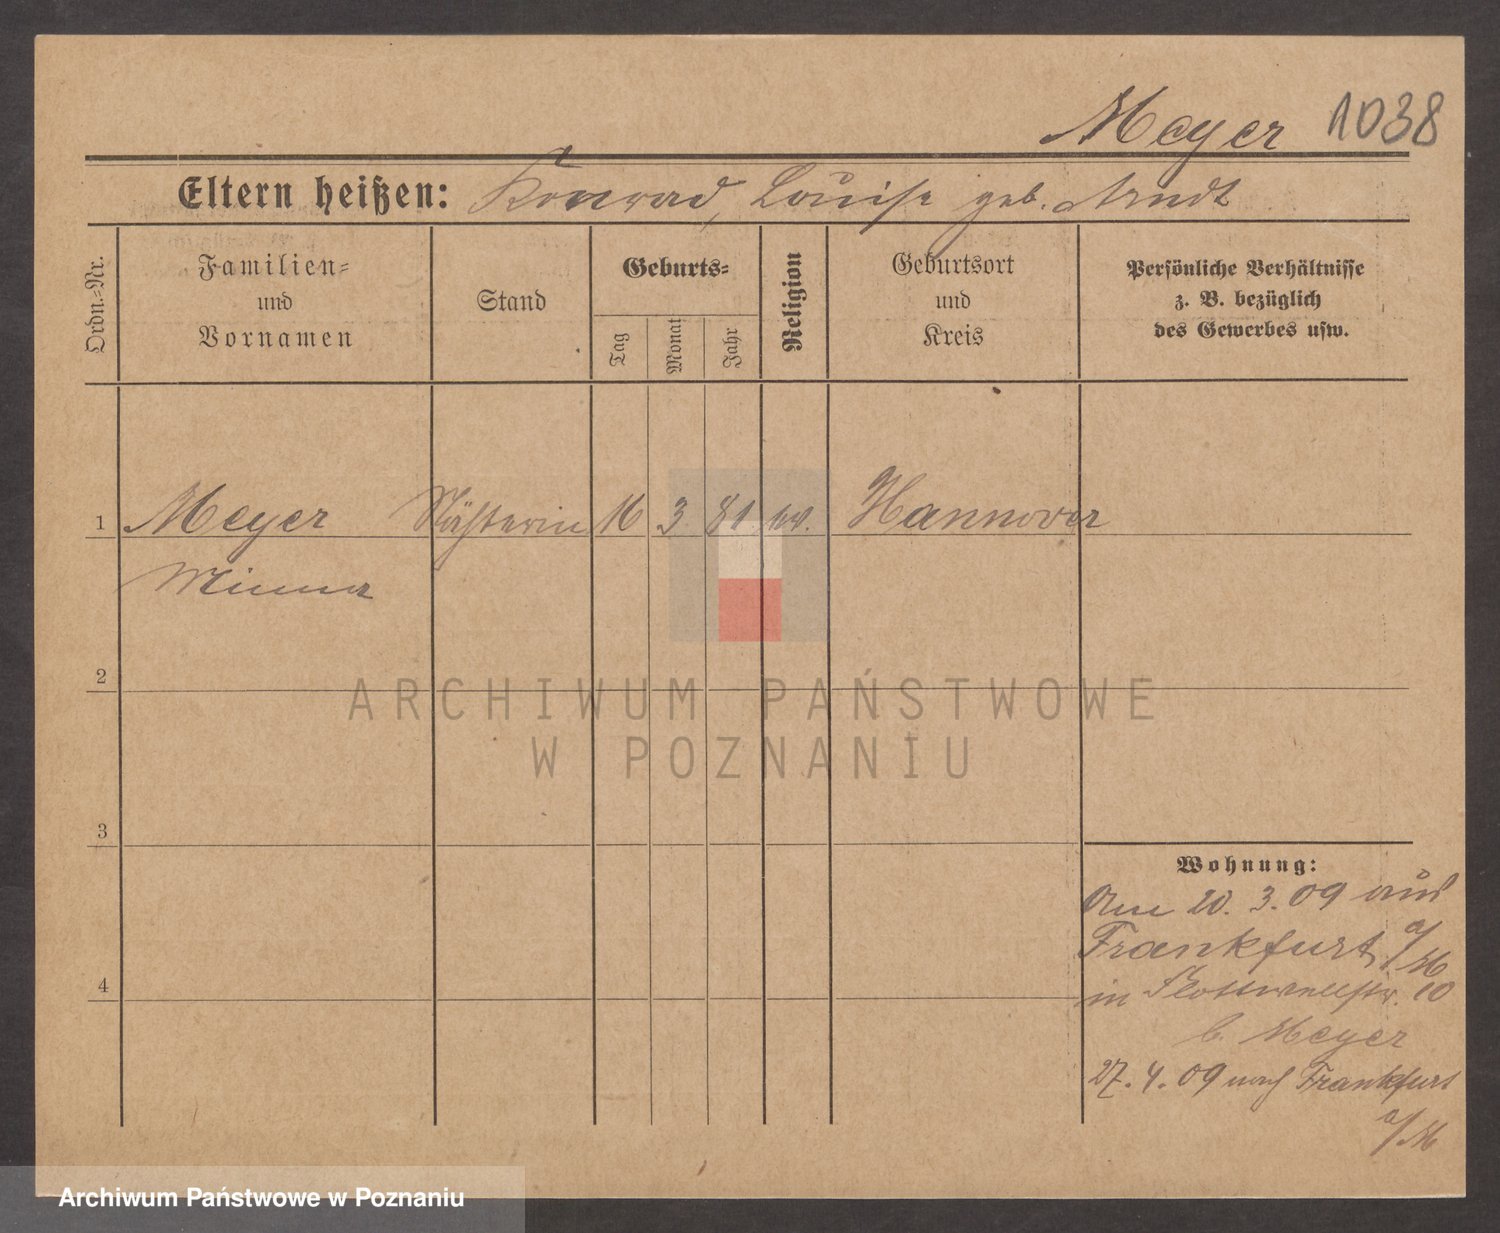 Meyer 1038
Eltern heißen: Konrad, Louise geb. Arndt
Ordn.=Nr.
Familien=
und
Vornamen
Stand
Geburts=
Tag
Monat
Jahr
Religion
Geburtsort
und
Kreis
Persönliche Verhältnisse
z. B. bezüglich
des Gewerbes usw.
1 Meyer 16 3 81 ev. Hannover
Minna
2
3
4
Wohnung:
Am 20. 3. 09 aus
Frankfurt a/M
in Flottwellstr. 10
b. Meyer
27. 4. 09 nach Frankfurt
a/M
ARCHIWUM PAŃSTWOWE
W POZNANIU
Archiwum Państwowe w Poznaniu